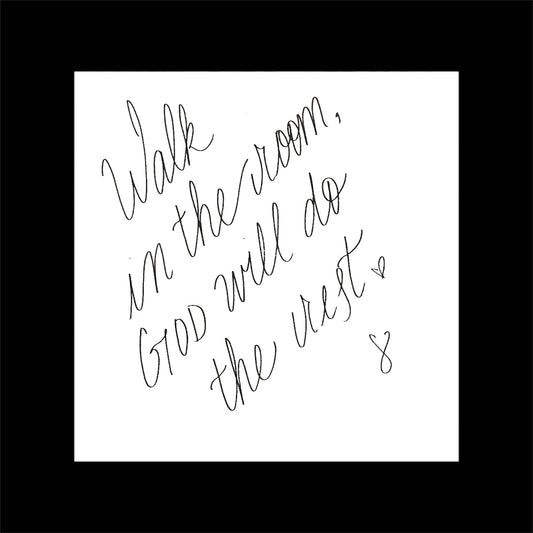 Walk
in the room,
GOD will do
the rest. ♡
8